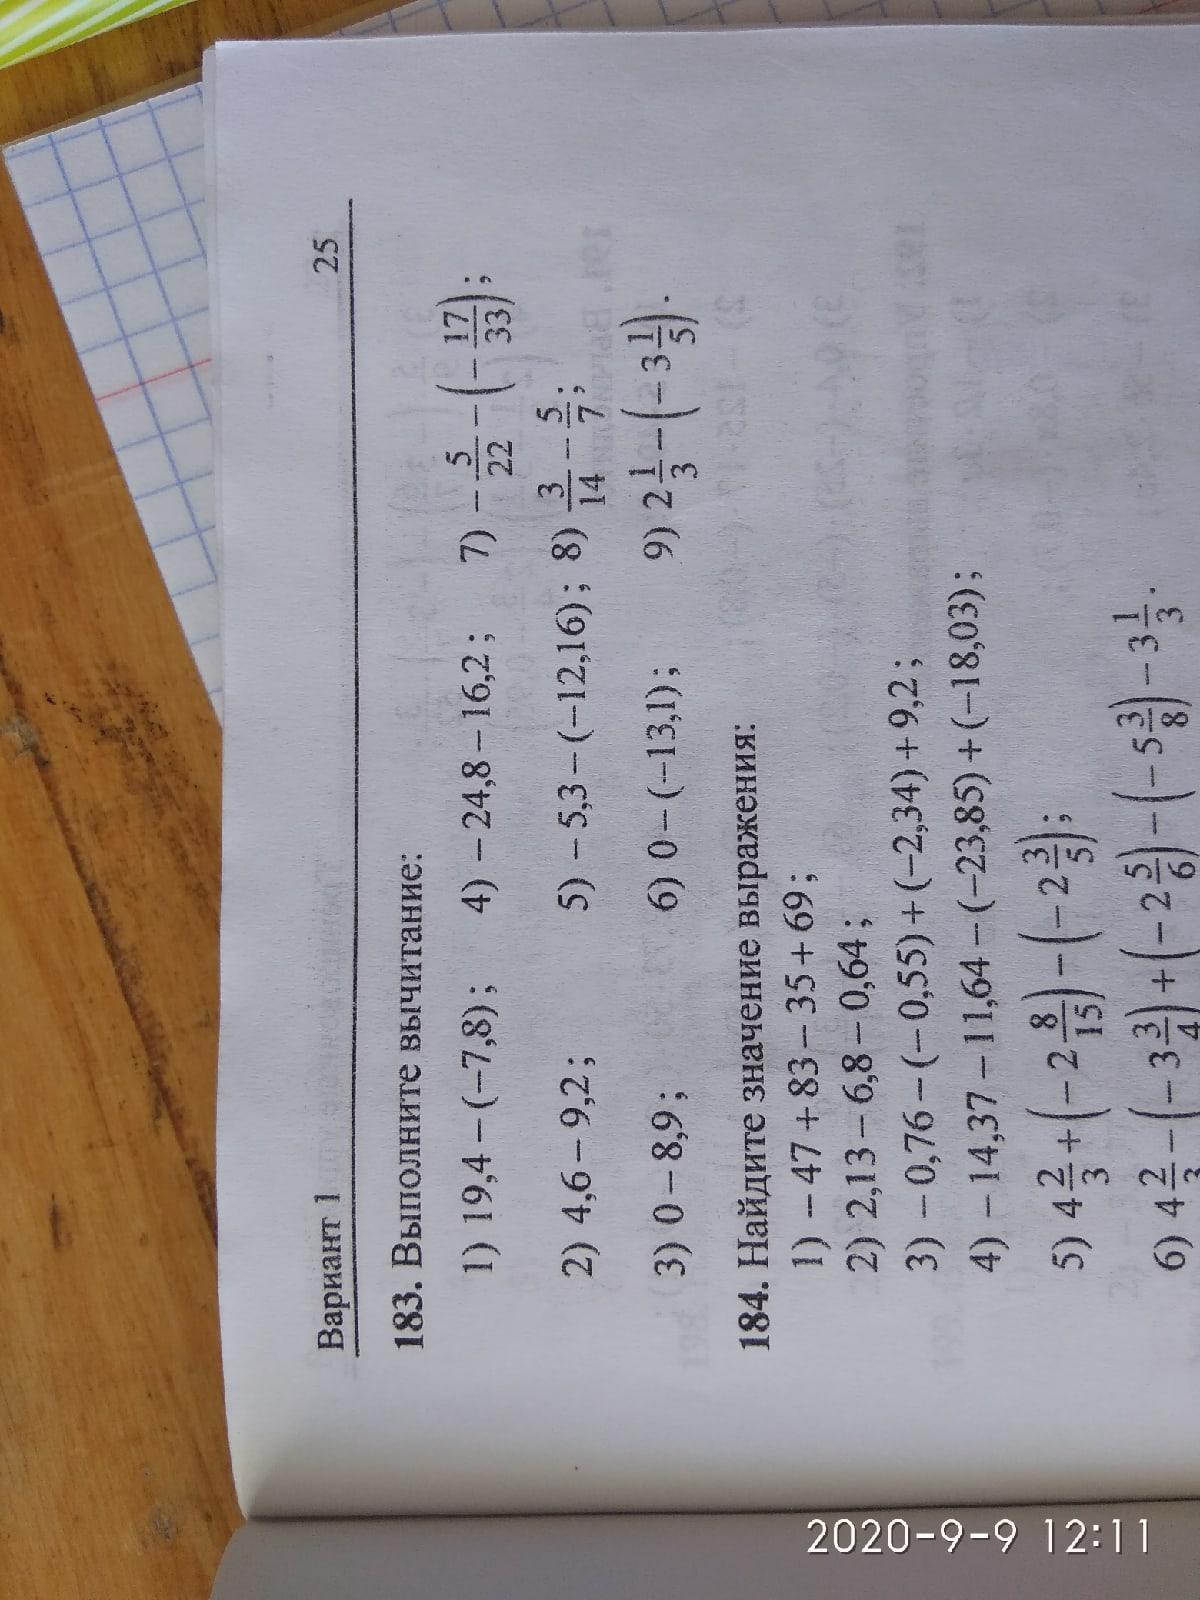 Вариант 1 25
183. Выполните вычитание:
1) 19,4 – (–7,8); 4) – 24,8 – 16,2; 7) – 5/22 – (– 17/33);
2) 4,6 – 9,2; 5) – 5,3 – (–12,16); 8) 3/14 – 5/7;
3) 0 – 8,9; 6) 0 – (–13,1); 9) 2 1/3 – (– 3 1/5).
184. Найдите значение выражения:
1) – 47 + 83 – 35 + 69;
2) 2,13 – 6,8 – 0,64;
3) – 0,76 – (– 0,55) + (–2,34) + 9,2;
4) – 14,37 – 11,64 – (–23,85) + (–18,03);
5) 4 2/3 + (– 2 8/15) – (– 2 3/5);
6) 4 2/3 – (– 3 3/4) + (– 2 5/6) – (– 5 3/8) – 3 1/3.
2020-9-9 12:11